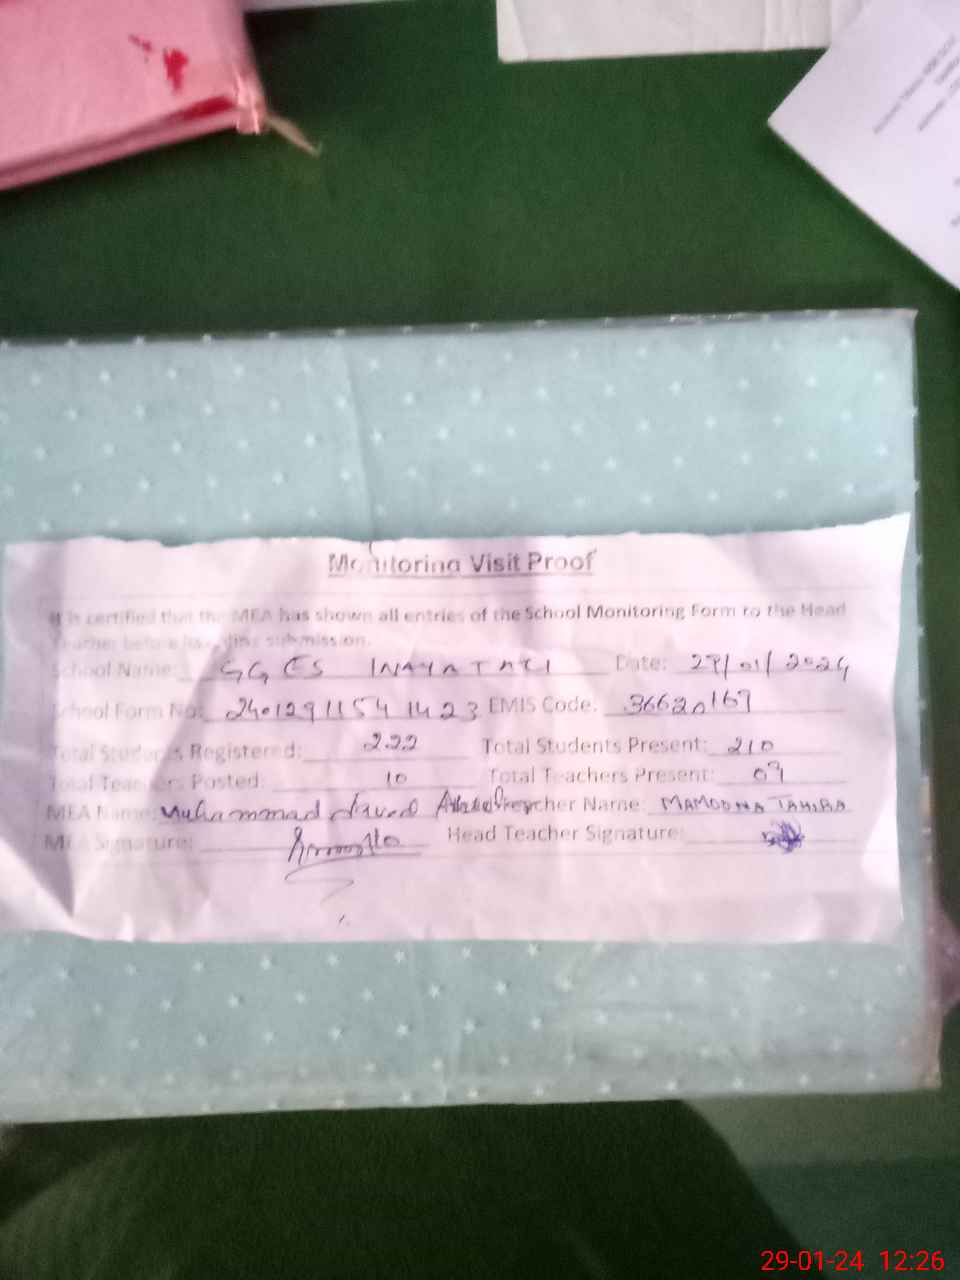 Monitoring Visit Proof
It is certified that the MEA has shown all entries of the School Monitoring Form to the Head
Teacher before submission.
School Name: GGES INAYATAKI Date: 29/01/2024
School Form No: 2401291154 1423 EMIS Code: 36620169
Total Students Registered: 222 Total Students Present: 210
Total Teachers Posted: 10 Total Teachers Present: 09
MEA Name: Muhammad Javed Teacher Name: MAMOONA TAHIRA
MEA Signature: Head Teacher Signature:
29-01-24 12:26